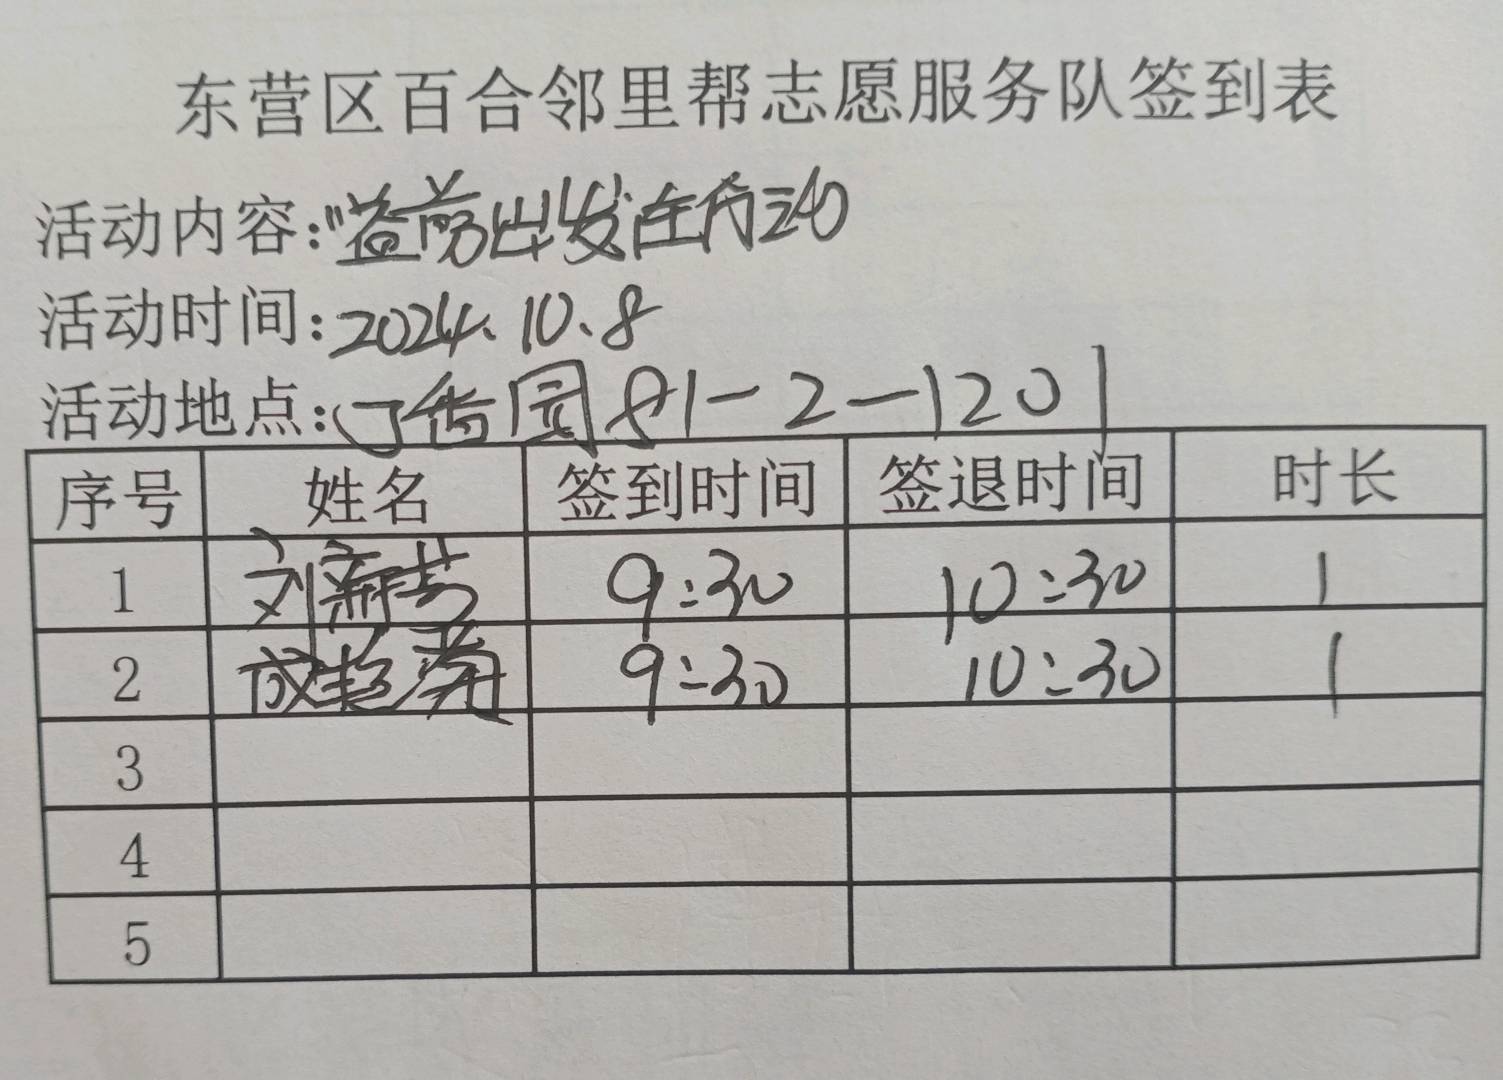 东营区百合邻里帮志愿服务队签到表
活动内容:"益剪出发在行动
活动时间:2024.10.8
活动地点:丁香园81-2-1201
序号 姓名 签到时间 签退时间 时长
1 刘新芳 9:30 10:30 1
2 9:30 10:30 1
3
4
5